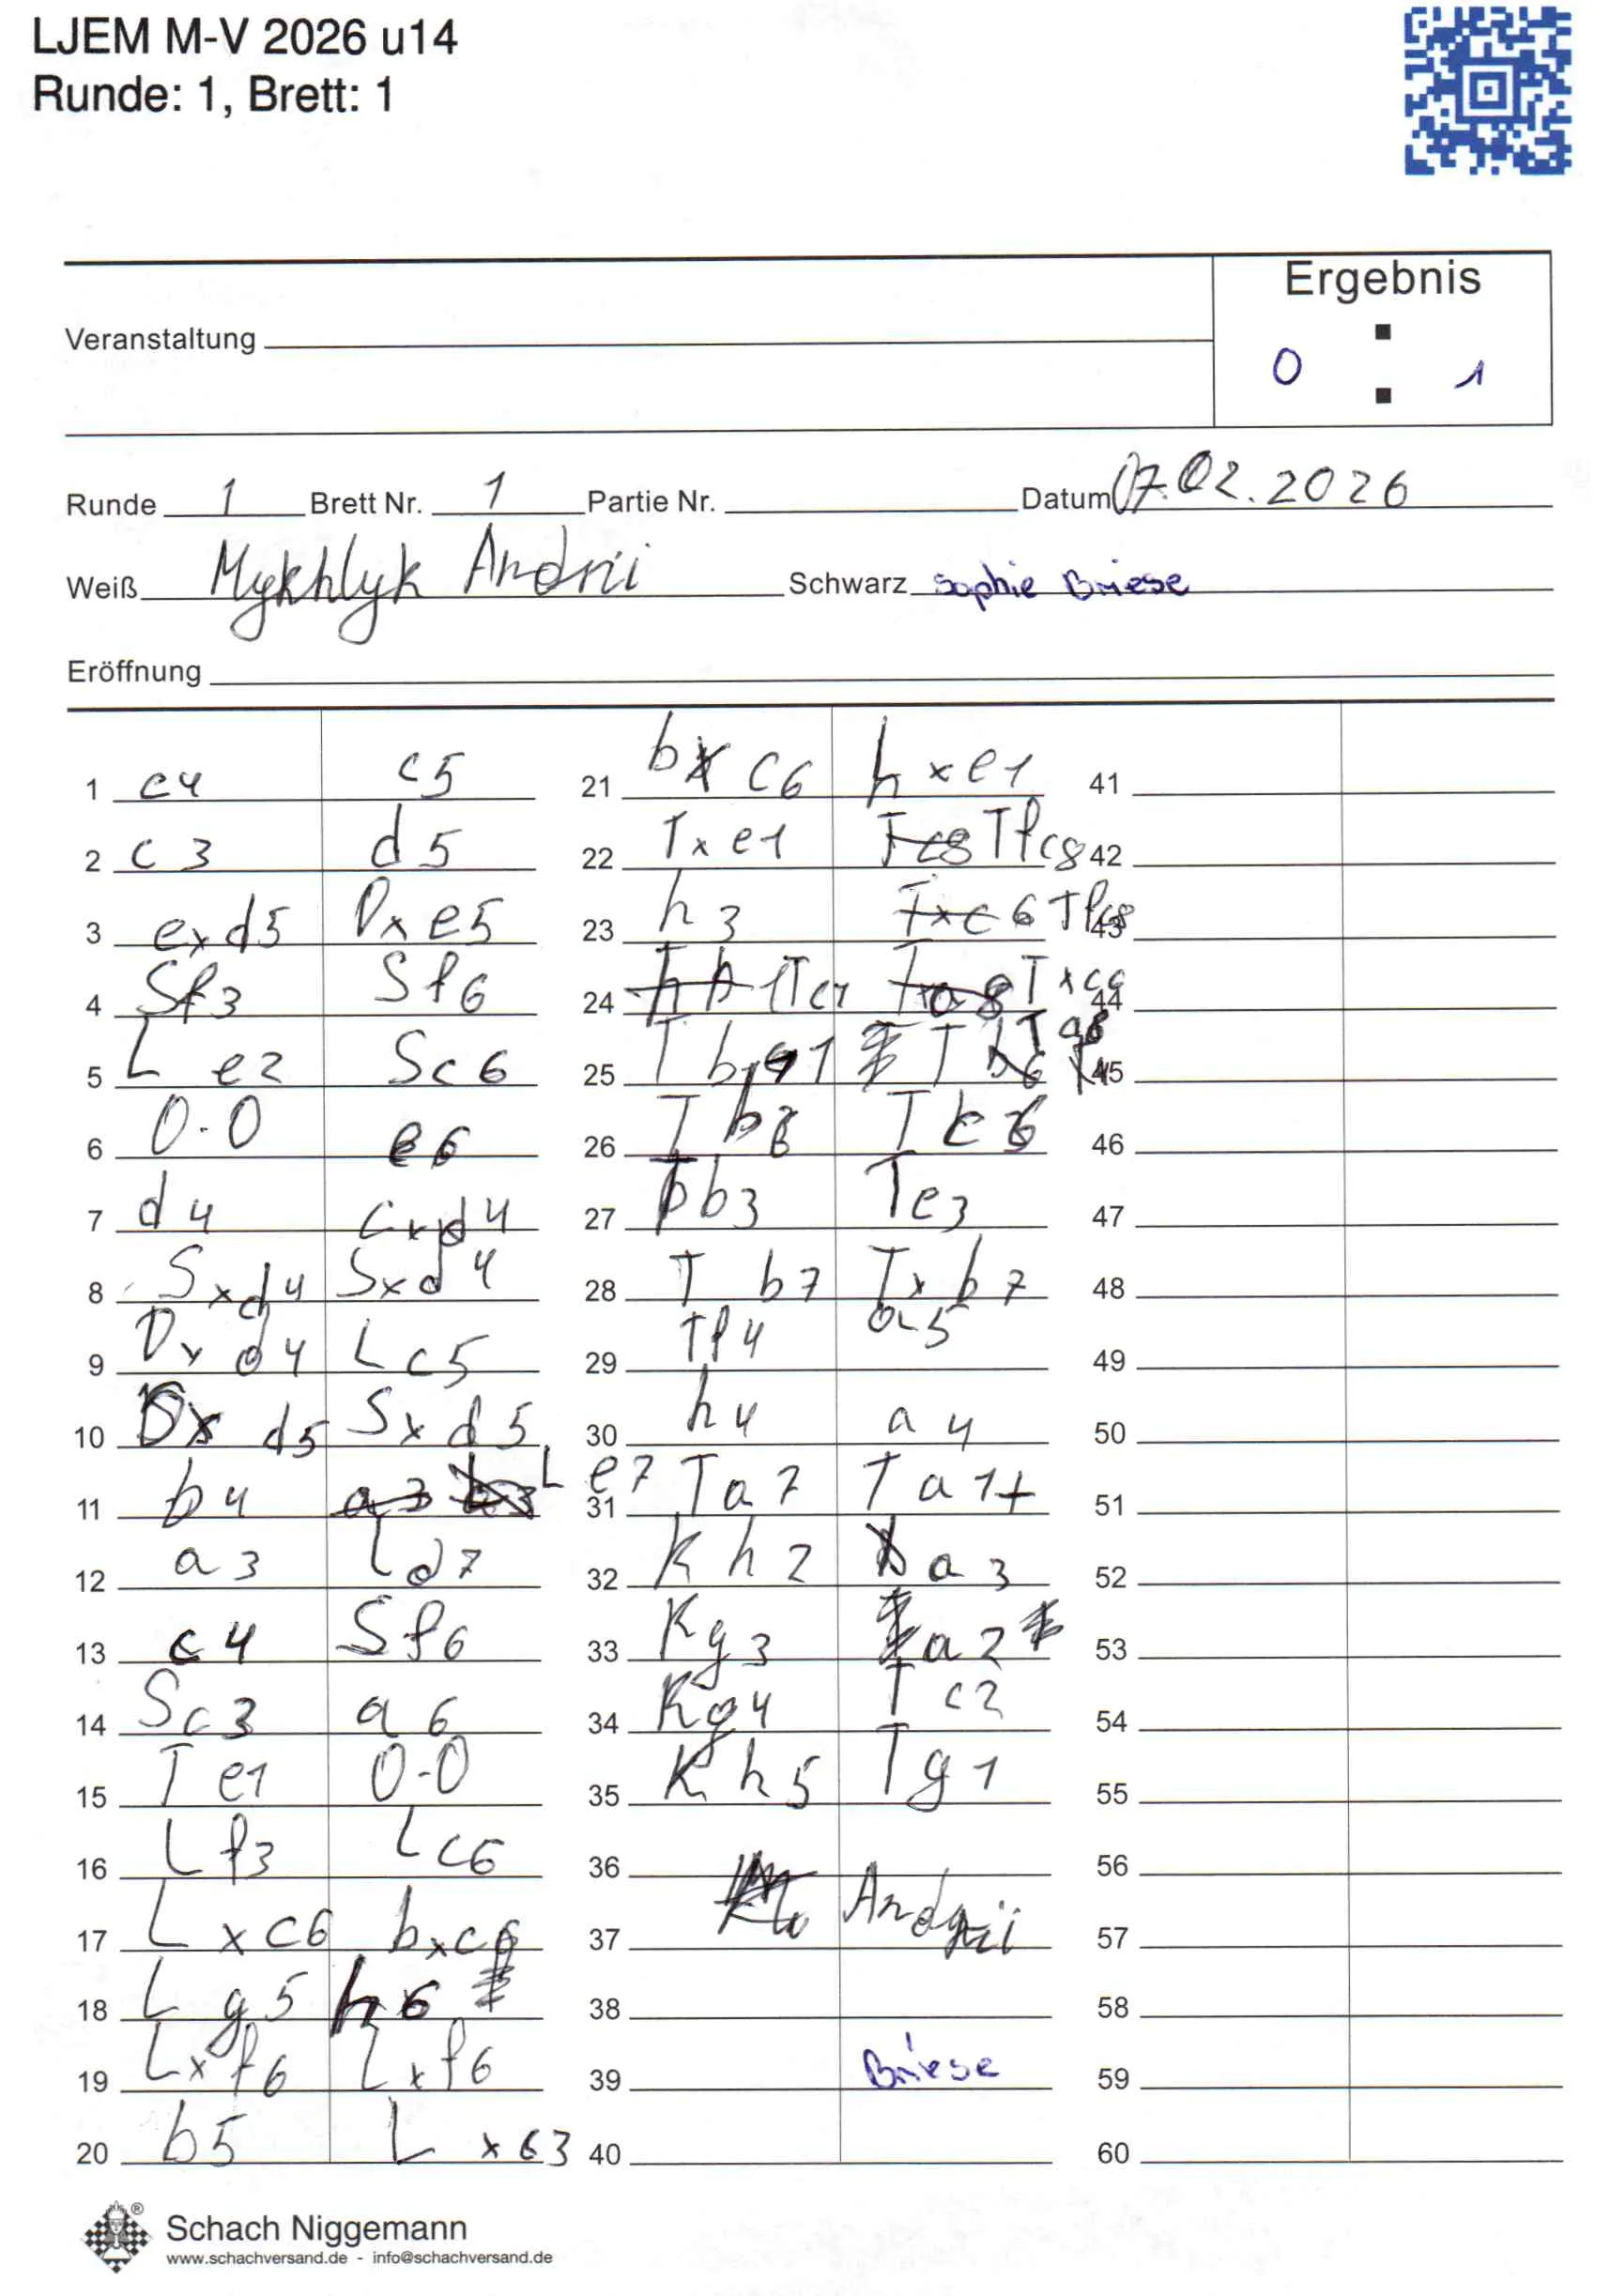 LJEM M-V 2026 u14
Runde: 1, Brett: 1
Ergebnis
Veranstaltung
0 : 1
Runde 1 Brett Nr. 1 Partie Nr. Datum 07.02.2026
Weiß Mykhlyk Andrii Schwarz Sophie Briese
Eröffnung
1 e4 c5
2 c3 d5
3 exd5 Dxe5
4 Sf3 Sf6
5 Le2 Sc6
6 0-0 e6
7 d4 cxd4
8 Sxd4 Sxd4
9 Dxd4 Lc5
10 Dxd5 Sxd5
11 b4 Le7
12 a3 Ld7
13 c4 Sf6
14 Sc3 a6
15 Te1 0-0
16 Lf3 Lc6
17 Lxc6 bxc6
18 Lg5 h6
19 Lxf6 Lxf6
20 b5 Lxc3
21 bxc6 hxe1
22 Txe1 Tfc8
23 h3
24 Tc1 Txc6
25 Tb1
26 Tb8
27 Tb3 Te3
28 Tb7 Txb7
29 Tf4 a5
30 h4 a4
31 Ta7 Ta1+
32 Kh2 a3
33 Kg3 a2
34 Kg4 Tc2
35 Kh5 Tg1
36
37 Andrii
38
39 Briese
40
41
42
43
44
45
46
47
48
49
50
51
52
53
54
55
56
57
58
59
60
Schach Niggemann
www.schachversand.de - info@schachversand.de